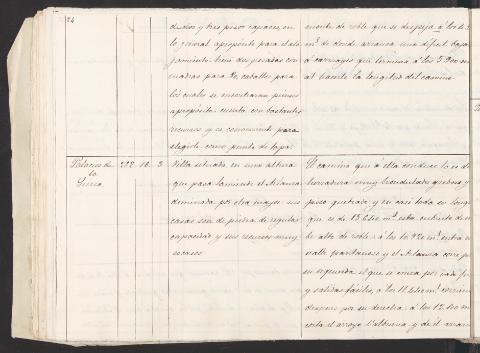 24
de dos y tres pisos capaces, en
lo general apropósito para el alo
jamiento. tiene dos posadas con
cuadras para 20 caballos para
los cuales se encontraran piensos
apropósito. cuenta con bastantes
recursos y es conveniente para
elegirla como punto de etapa.
monte de roble que se despeja á los
mts de donde arranca una dificil bajada
á carruages que termina á los
al tramite la longitud del camino.
Palacios de
la
Sierra.
222 18 3
Villa situada en una altura
que pasa lamiendo el Arlanza
dominada por otra mayor: sus
casas son de piedra de regular
capacidad y sus recursos muy
escasos
El camino que á ella conduce es de
herradura muy hondulado
piso quebrado y en casi toda su longi
que es de 13.600 mts está cubierto de
de alto de roble: á los 10.420 mts entra en
valle pantanoso y el Arlanza corre por
su izquierda el que se cruza por vado
y salidas faciles, á los 11.600 mts
despues por su derecha: á los 12.400 mts
corta el arroyo